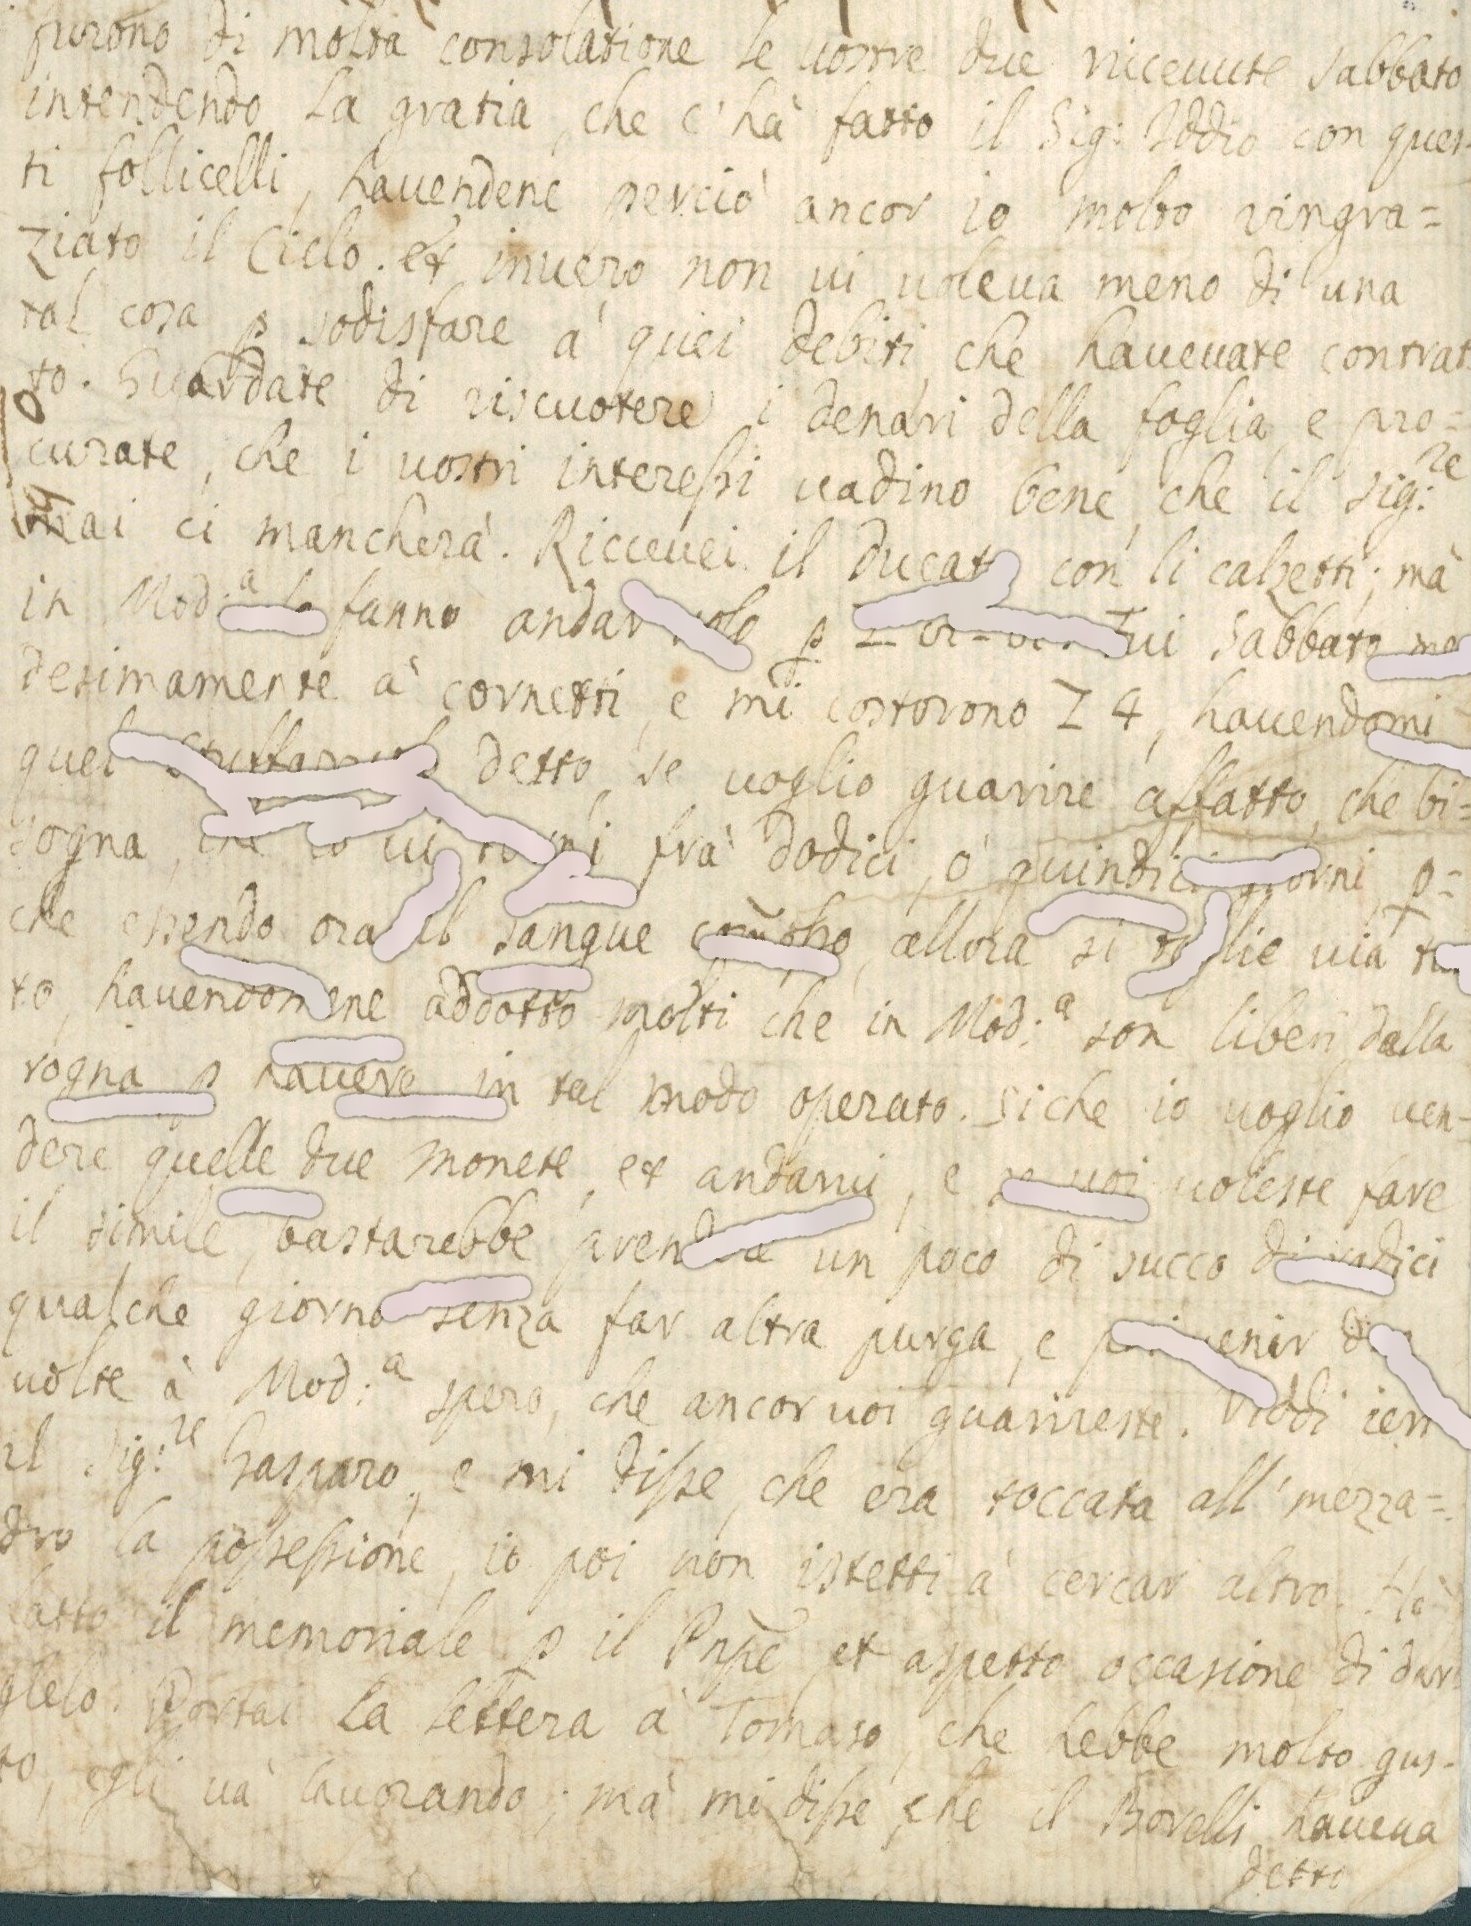 furono di molta consolatione le vostre due ricevute sabbato
intendendo la gratia, che c'hà fatto il Sig: Iddio con ques-
ti follicelli, havendene perciò ancor io molto ringra=
ziato il Cielo. et invero non vi voleva meno di una
tal cosa p sodisfare à quei debiti, che havevate contrat
to. Guardate di riscuotere i denari della foglia, e pro=
curate, che i vostri interessi vadino bene, che il Sig:re
mai ci mancherà. Riccevei il Ducato con li calzetti; mà
in Mod:a fanno andar p fui Sabbato me
desimamente à cornetti, e mi costorono Z 4, havendomi
quel detto se voglio guarire affatto, che bi=
sogna, che io vi torni frà dodici, ò quindici giorni, p=
che essendo ora il sangue, allora si toglie via
to, havendomene addotto molti che in Mod:a son liberi dalla
rogna p havere in tal modo operato. Siche io voglio ven-
dere quelle due monete, et andarvi, e se voi voleste fare
il simile, bastarebbe prendere un poco di succo di radici
qualche giorno senza far altra purga, e poi venir
volte à Mod:a spero, che ancor voi guarireste. Viddi ieri
il Sig:re Gasparo, e mi disse, che era toccata all'mezza=
dro la possessione, io poi non istetti à cercar altro. Hò
fatto il memoriale p il Pnpe et aspetto occasione di dar
glelo. Portai la lettera à Tomaso, che hebbe molto gus-
to, egli và lavorando; mà mi disse, che il Borelli haveva
detti